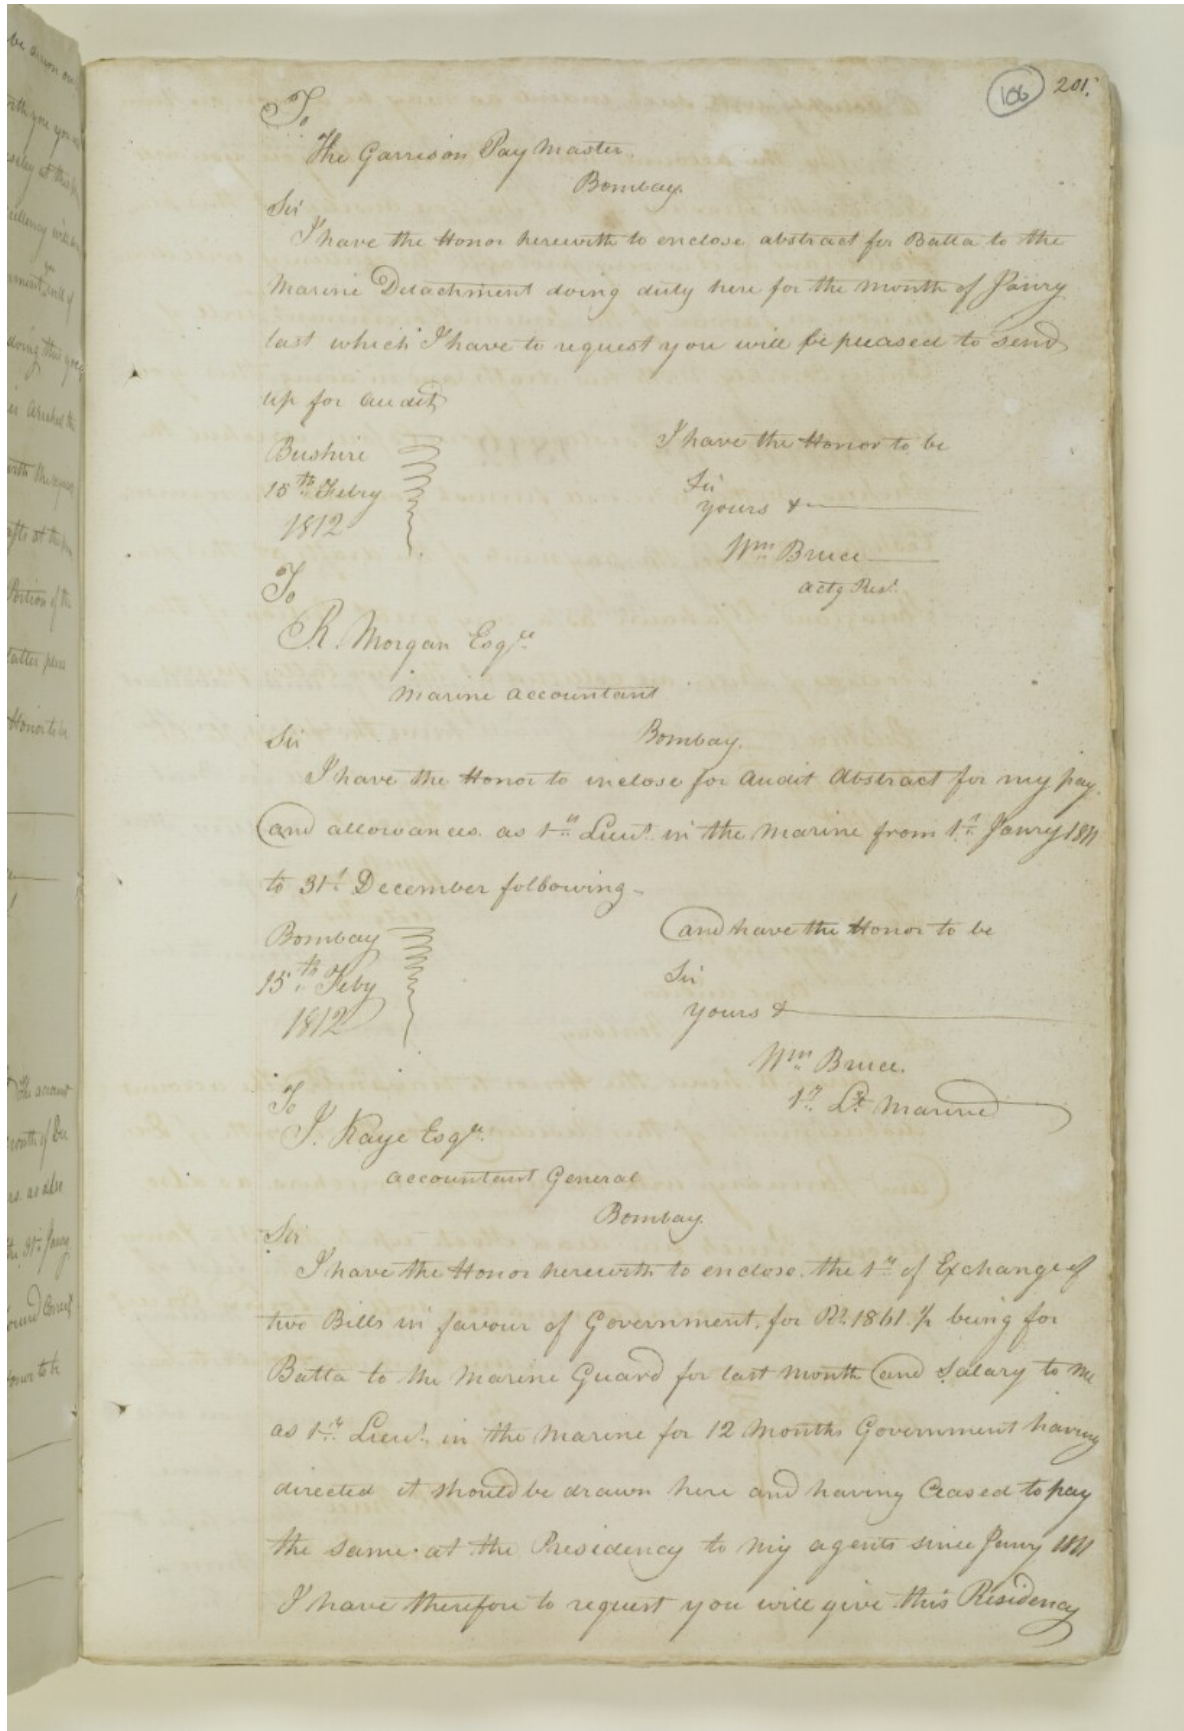 106 201.
To
The Garrison Pay Master.
Bombay.
Sir
I have the Honor herewith to enclose abstract for Batta to the
Marine Detachment doing duty here for the Month of Janry
last which I have to request you will be pleased to send
up for audit
Bushire
15th Febry
1812
I have the Honor to be
Sir
yours &
Wm Bruce
actg Rest.
To
R. Morgan Esqre.
Marine accountant
Bombay.
Sir
I have the Honor to inclose for audit abstract for my pay.
and allowances. as 1st Lieut. in the Marine from 1st Janry 1811
to 31st December following -
Bombay
15th Feby
1812
and have the Honor to be
Sir
yours &
Wm Bruce.
1st Lt. Marine
To
J. Kaye Esqr.
accountant General
Bombay.
Sir
I have the Honor herewith to enclose. the 1st of Exchange of
two Bills in favour of Government. for Rs. 1861. being for
Batta to the Marine Guard for last Month and Salary to me
as 1st Lieut. in the Marine for 12 Months Government having
directed it should be drawn here and having Ceased to pay
the same at the Presidency to my agents since Janry 1811
I have therefore to request you will give this Residency